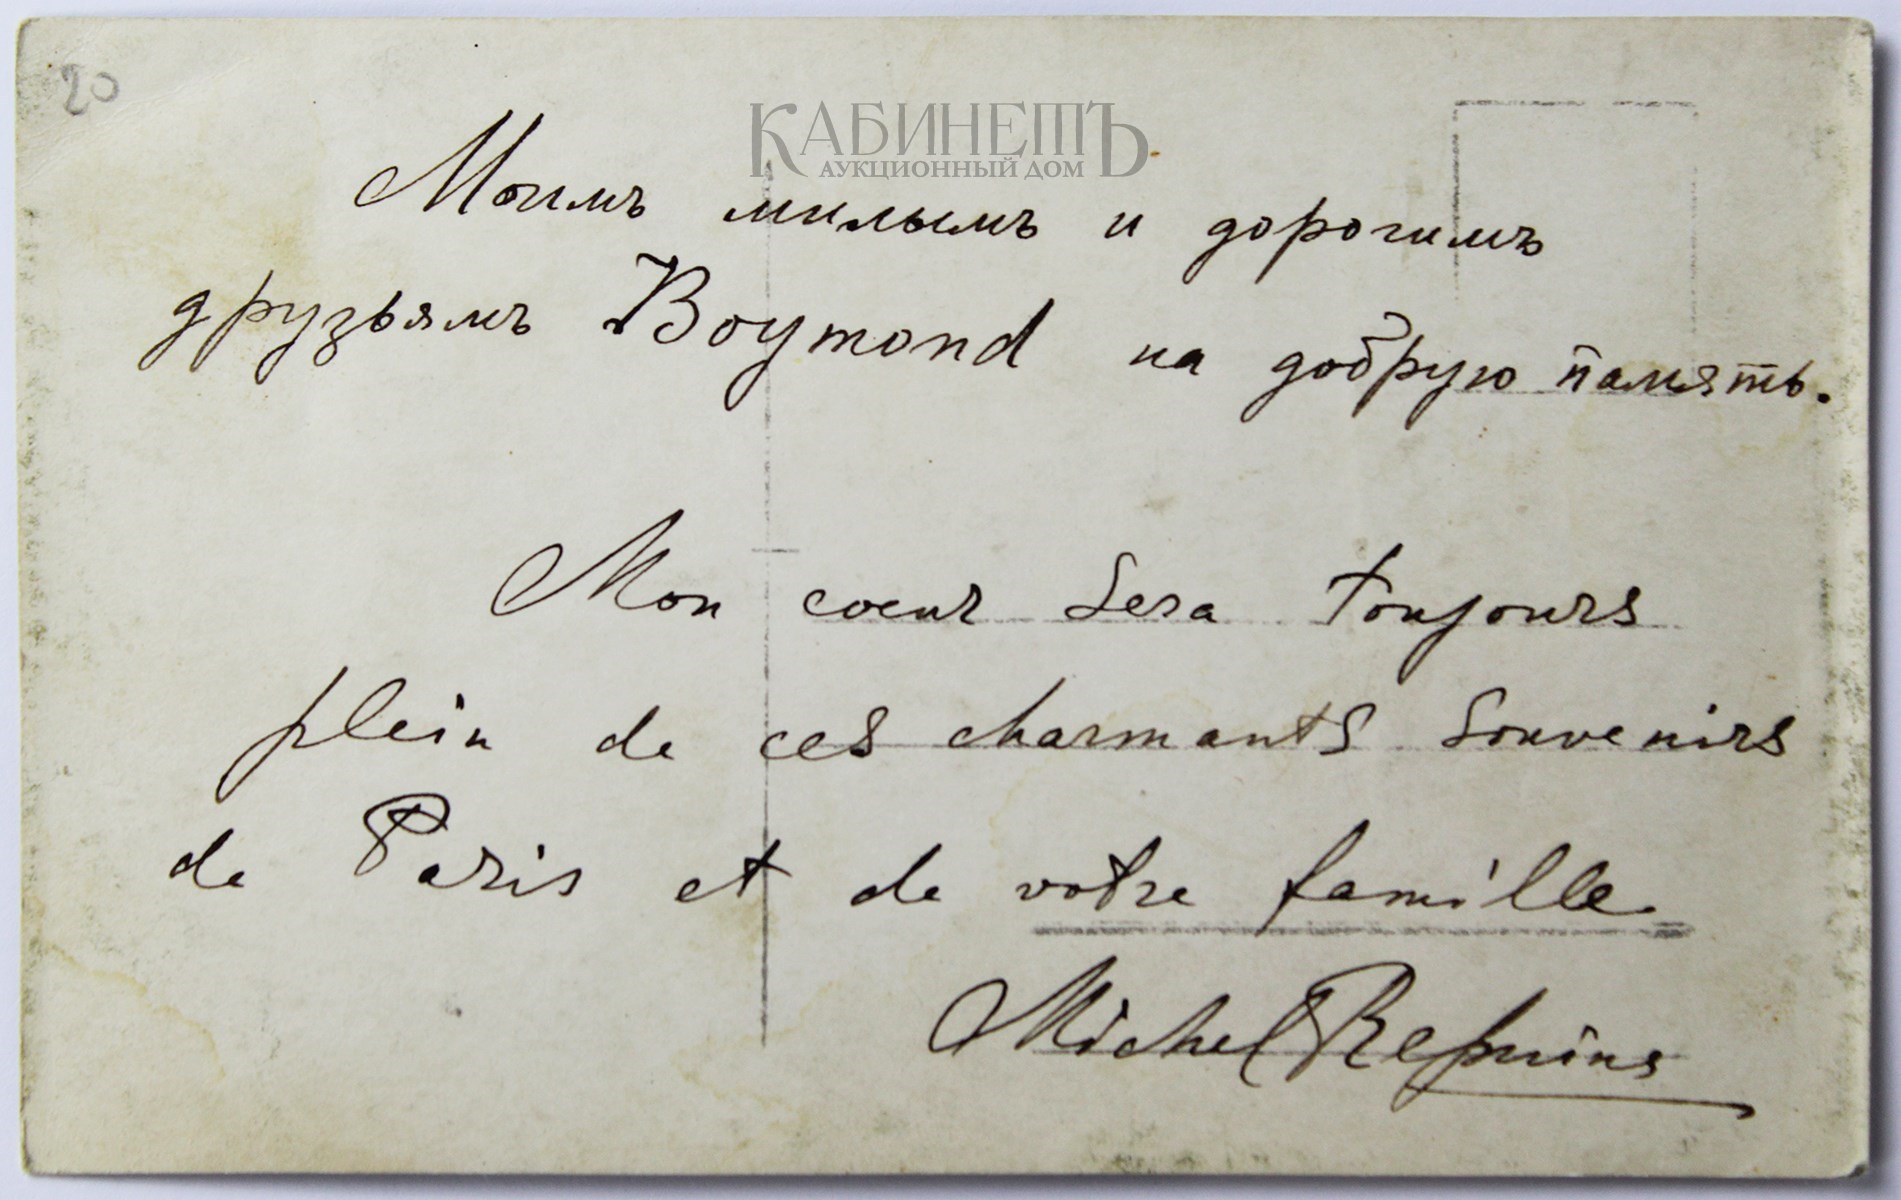 20
КАБИНЕТЪ
АУКЦИОННЫЙ ДОМ
Моимъ милымъ и дорогимъ
друзьямъ Boymond на добрую память.
Mon coeur sera toujours
plein de ces charmants souvenirs
de Paris et de votre famille
Michel Repnine